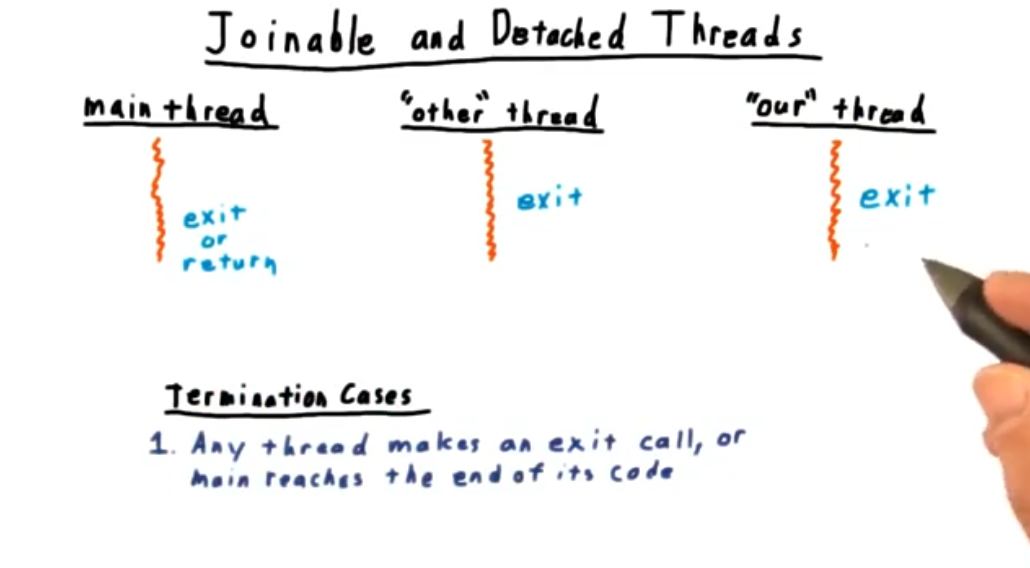 Joinable and Detached Threads
main thread
"other" thread
"our" thread
exit
or
return
exit
exit
Termination Cases
1. Any thread makes an exit call, or
main reaches the end of its code